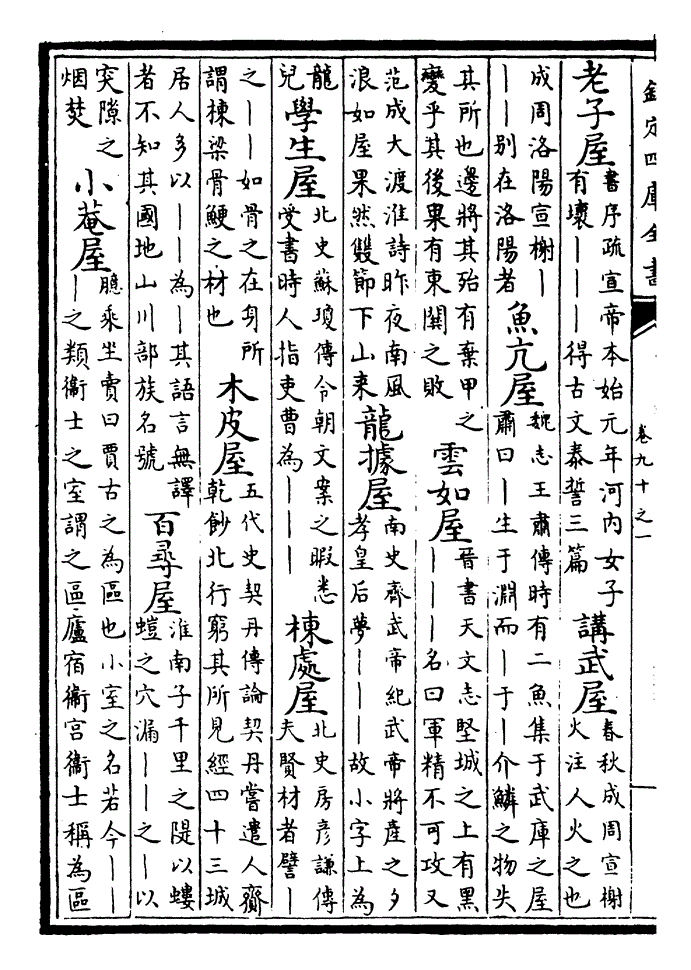 欽定四庫全書
卷九十之一
老子屋
書序疏宣帝本始元年河內女子
有壞｜｜｜得古文泰誓三篇
講武屋
春秋成周宣榭
火注人火之也
成周洛陽宣榭｜
｜｜別在洛陽者
魚亢屋
魏志王肅傳時有二魚集于武庫之屋
肅曰｜生于淵而｜于｜介鱗之物失
其所也邊將其殆有棄甲之
變乎其後果有東關之敗
雲如屋
晉書天文志堅城之上有黑
｜｜｜名曰軍精不可攻又
范成大渡淮詩昨夜南風
浪如屋果然雙節下山來
龍據屋
南史齊武帝紀武帝將產之夕
孝皇后夢｜｜｜故小字上為
龍
兒
學生屋
北史蘇瓊傳令朝文案之暇悉
受書時人指吏曹為｜｜｜
棟處屋
北史房彥謙傳
夫賢材者譬｜
之｜｜如骨之在身所
謂棟梁骨鯁之材也
木皮屋
五代史契丹傳論契丹嘗遣人齎
乾鈔北行窮其所見經四十三城
居人多以｜｜為｜其語言無譯
者不知其國地山川部族名號
百尋屋
淮南子千里之隄以螻
螘之穴漏｜｜之｜以
突隙之
烟焚
小菴屋
臆乘坐賣曰賈古之為區也小室之名若今｜｜
｜之類衞士之室謂之區廬宿衞宮衞士稱為區